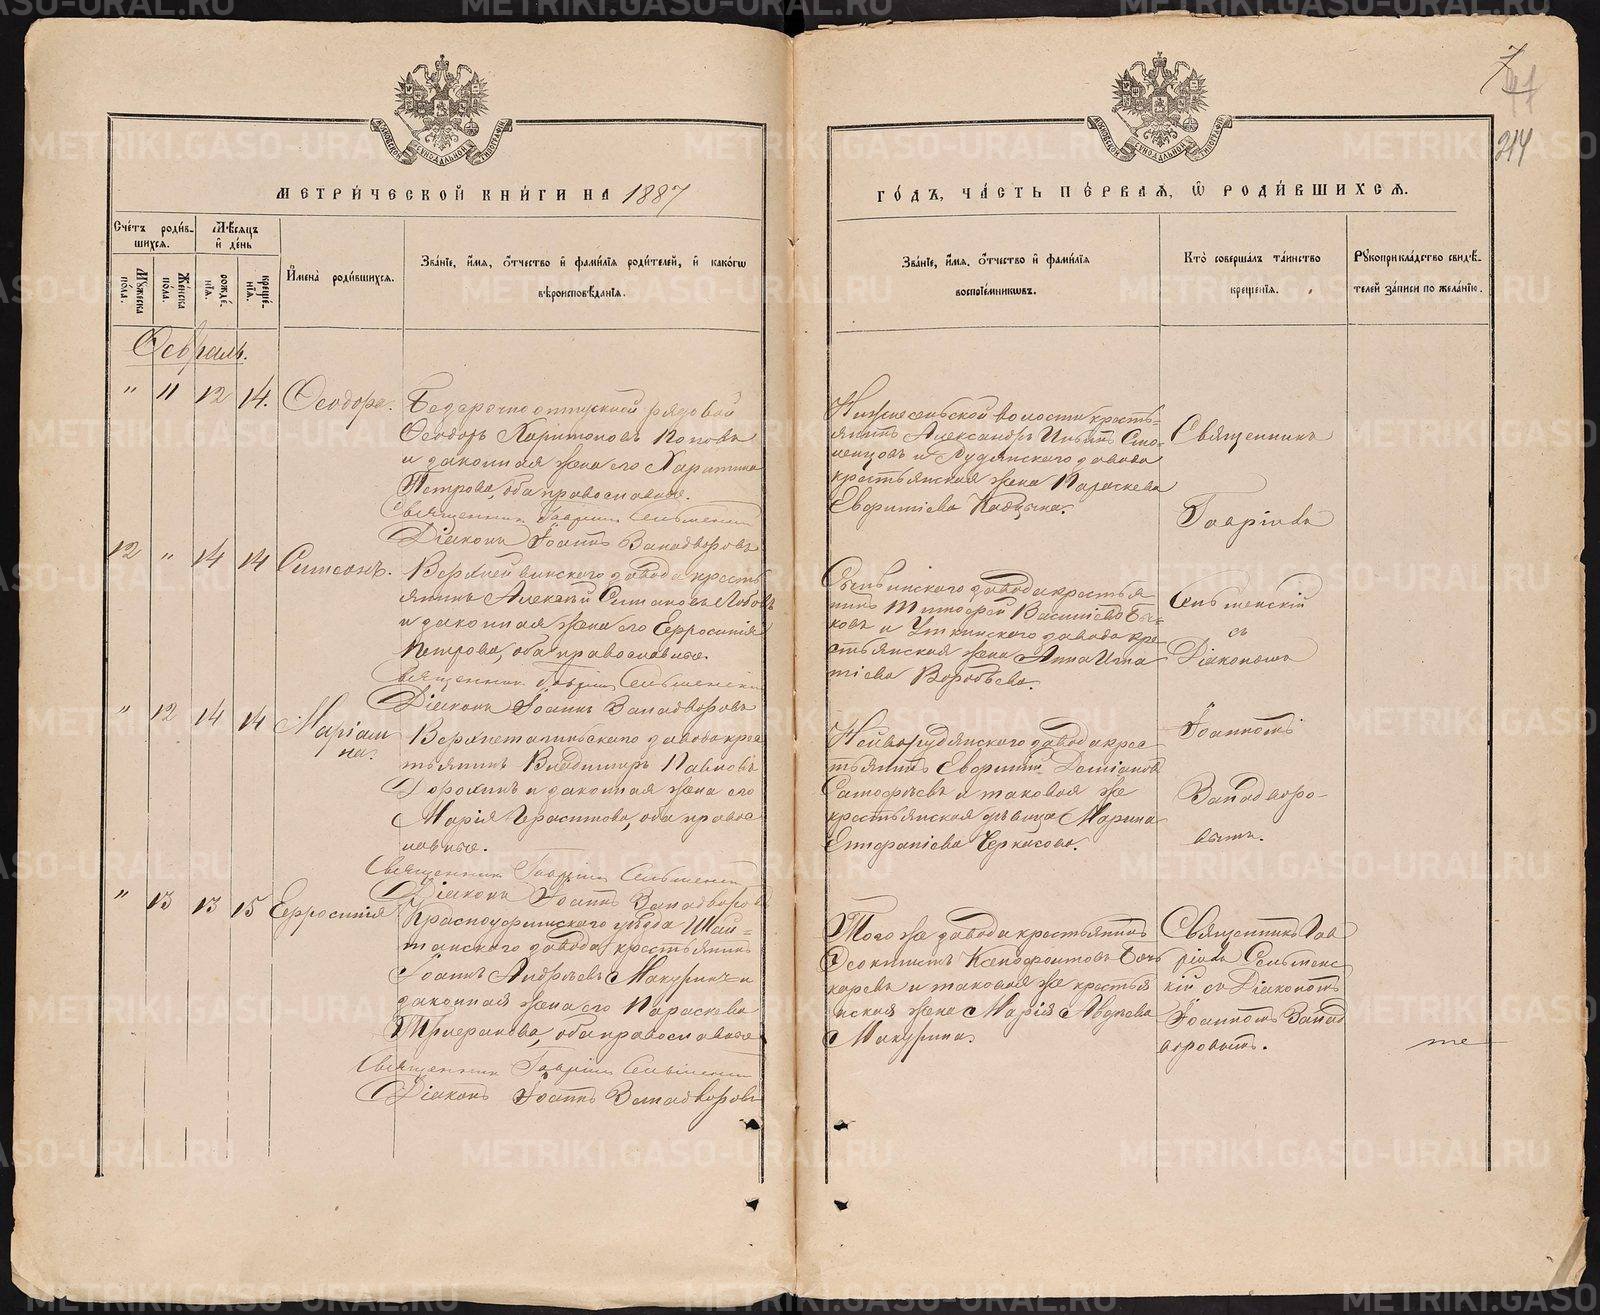 7
41
214
МЕТРИ́ЧЕСКОЙ КНИ́ГИ НА 1887
ГО́ДЪ, ЧА́СТЬ ПЕ́РВАЯ, Ѡ РОДИ́ВШИХСЯ.
Сче́тъ роди́в-
шихся.
Мѣ́сяцъ
и́ де́нь
Мꙋ́жеска
по́ла.
Же́нска
по́ла.
рожде́-
нїя.
креще́-
нїя.
И҆мена̀ роди́вшихся.
Зва́нїе, и҆́мя, ѻ҆́тчество и҆ фами́лїя роди́телей, и҆ како́гѡ
вѣроисповѣ́данїя.
Зва́нїе, и҆́мя, ѻ҆́тчество и҆ фами́лїя
воспрїе́мникѡвъ.
Кто̀ соверша́лъ та́инство
креще́нїя.
Рꙋкоприкла́дство свидѣ́-
телей за́писи по жела́нїю.
Февраль.
" 11 12 14. Ѳеодора.
Безсрочно отпускной рядовой
Ѳеодоръ Харитоновъ Поповъ
и законная жена его Харитина
Петрова, оба православные.
Священникъ Гавріилъ Сельменскій
Діаконъ Іоаннъ Западворовъ
Нижнесельской волости кресть-
янинъ Александръ Ильинъ
и Рудянского завода
крестьянская жена Параскева
Евфиміева
Священникъ
Гавріилъ
12 " 14 14 Симеонъ.
Верхнейвинского завода кресть
янинъ Алексѣй Симановъ Лобовъ
и законная жена его Ефросинія
Петрова, оба православные.
Священникъ Гавріилъ Сельменскій
Діаконъ Іоаннъ Западворовъ
завода крестья
нинъ Тимофей Васильевъ Бы-
ковъ и Уткинского завода кре-
стьянская жена Анна Игна
тіева Воробьева.
Сельменскій
съ
Діакономъ
" 12 14 14 Маріам
на.
Верхнетагильского завода крес
тьянинъ Владимиръ Павловъ
Дорохинъ и законная жена его
Марія Герасимова, оба правос
лавные.
Священникъ Гавріилъ Сельменскій
Діаконъ Іоаннъ Западворовъ
Нейворудянского завода крес
тьянинъ Евфимій Деміановъ
и таковая же
крестьянская дѣвица Марина
Епифаніева Черкасова.
Іоанномъ
Западворо-
вымъ.
" 13 13 15 Ефросинія
Красноуфимского уѣзда Шай-
танского завода крестьянинъ
Іоаннъ Андреевъ Макуринъ и
законная жена его Параскева
оба православные
Священникъ Гавріилъ Сельменскій
Діаконъ Іоаннъ Западворовъ
Того же завода крестьянинъ
Ѳеоктистъ Ксенофонтовъ Боч
каревъ и таковая же крестья
нская жена Марія Авдѣева
Макурина.
Священникъ Гав
ріилъ Сельменс
кій съ Діакономъ
Іоанномъ Запад
воровымъ.